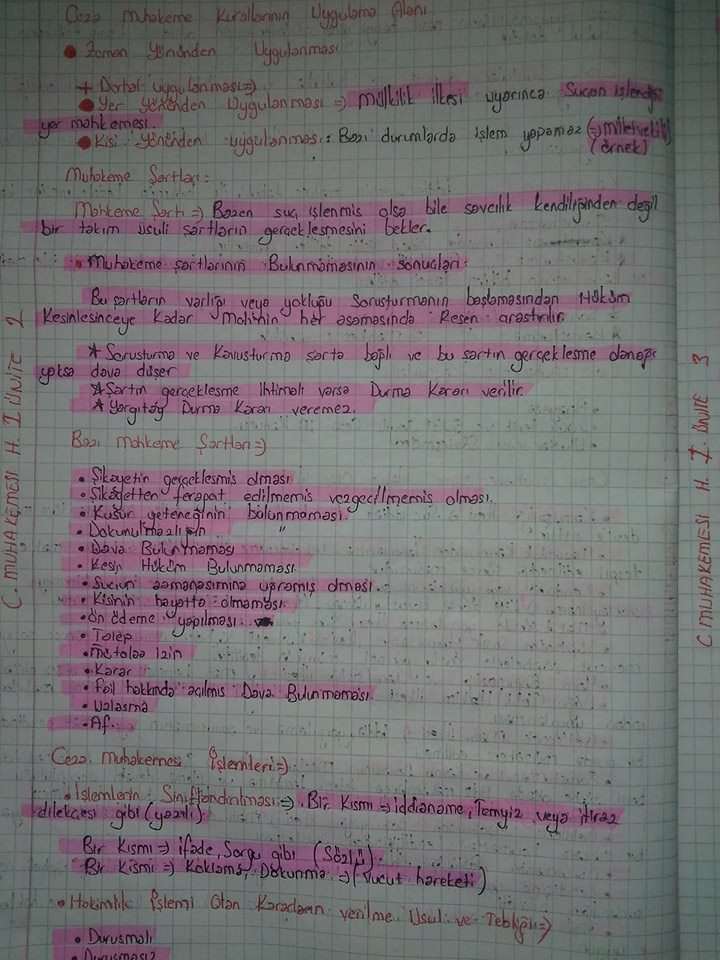 Ceza muhakeme Kurallarının Uygulama Alanı
• Zaman Yönünden Uygulanması
+ Derhal uygulanması =>
• Yer Yönünden Uygulanması => mülkilik ilkesi uyarınca Suçun işlendiği
yer mahkemesi.
• Kişi Yönünden uygulanması: Bazı durumlarda işlem yapamaz (=> milletvekili)
(örnek)
Muhakeme Şartları:
Mahkeme Şartı => Bazen suç işlenmiş olsa bile savcılık kendiliğinden değil
bir takım usuli şartların gerçekleşmesini bekler.
• Muhakeme şartlarının Bulunmamasının sonuçları:
Bu şartların varlığı veya yokluğu Soruşturmanın başlamasından Hüküm
Kesinlesinceye Kadar her aşamasında Resen araştırılır
* Soruşturma ve Kovusturma şarta bağlı ve bu şartın gerçekleşme
yoksa dava düşer
* Şartın gerçekleşme ihtimali varsa Durma Kararı verilir
* Yargıtay Durma Kararı veremez.
Bazı mahkeme Şartları =>
• Şikayetin gerçekleşmiş olması
• Şikayetten feragat edilmemiş vazgeçilmemiş olması.
• Kusur yeteneğinin bulunmaması.
• Dokunulmazlığın "
• Dava Bulunmaması
• Kesin Hüküm Bulunmaması
• Suçun zamanaşımına uğramış olması.
• Kişinin hayatta olmaması.
• Ön ödeme yapılması.
• Talep
• Mütalaa izin
• Karar
• Fail hakkında açılmış Dava Bulunmaması
• Uzlaşma
• Af.
Ceza Muhakemesi İşlemleri =>
• İslemlerin Sınıflandırılması => Bir Kısmı => iddianame, Temyiz veya itiraz
dilekçesi gibi (yazılı).
Bir Kısmı => ifade, Sorgu gibi (Sözlü).
Bir Kısmı => Koklama, Dokunma => (Vücut hareketi)
• Hakimlik İşlemi Olan Kararların verilme Usul ve Tebliği =>
• Duruşmalı
• Duruşmasız
C. MUHAKEMESI H. I ÜNİTE 2
C MUHAKEMESI H. I. ÜNİTE 3